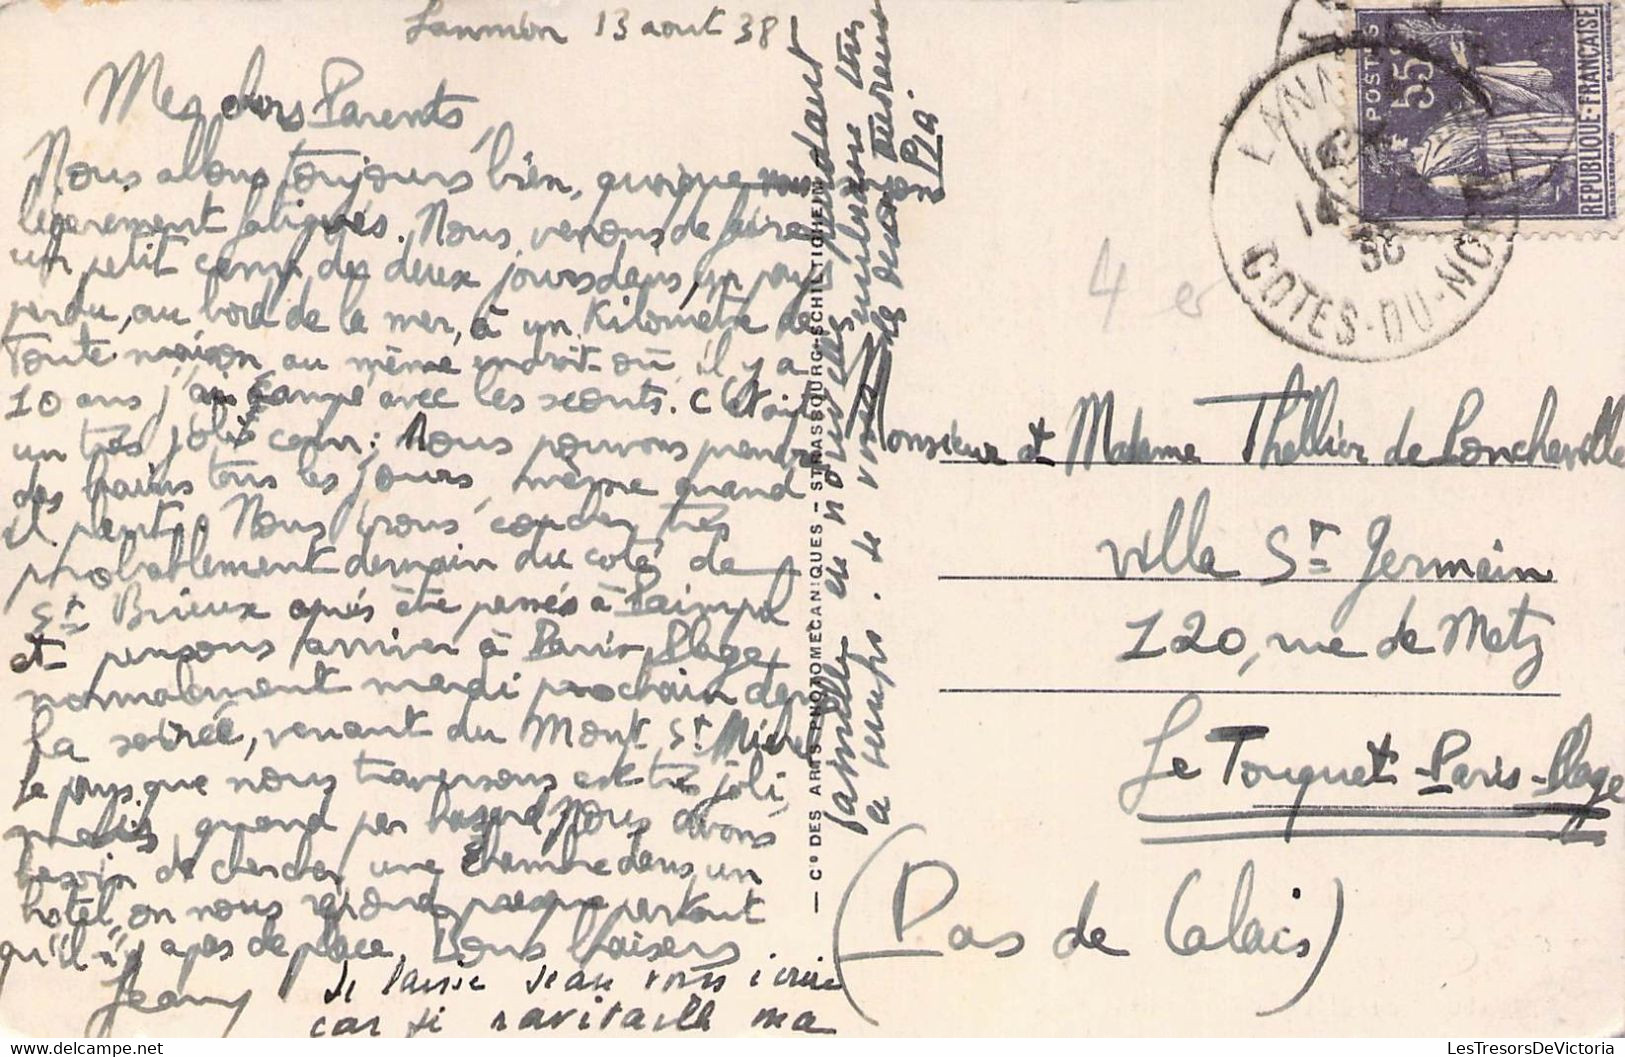 Lannion 13 aout 38
Mes chers Parents,
Nous allons toujours bien, quoique nous
legerement fatigués. Nous venons de faire
un petit camp des deux jours dans un pays
perdu, au bord de la mer, à un Kilometre de
toute maison au même endroit où il y a
10 ans j'ai campé avec les scouts. C'était
un très joli coin; Nous pouvons prendre
des bains tous les jours même quand
il pleut. Nous irons coucher très
probablement demain du coté de
St Brieux après être passés à Paimpol
et pensons arriver à Paris-Plage
normalement mardi prochain dans
la soirée, venant du Mont St Michel
Le pays que nous traversons est très joli
mais, quand par hasard nous avons
besoin de chercher une chambre dans un
hôtel, on nous répond presque partout
qu'il n'y a pas de place. Bons baisers
Jeany
Je laisse Jean vous écrire
car je ravitaille ma
famille en nouvelles
a temps. Je vous
Pia
— Cie DES ARTS PHOTOMECANIQUES - STRASBOURG-SCHILTIGHEIM
POSTES
55c
REPUBLIQUE-FRANÇAISE
LANNION
COTES-DU-NORD
4 es
Monsieur et Madame Thellier de Poncheville
villa St Germain
120, rue de Metz
Le Touquet-Paris-Plage
(Pas de Calais)
LesTresorsDeVictoria